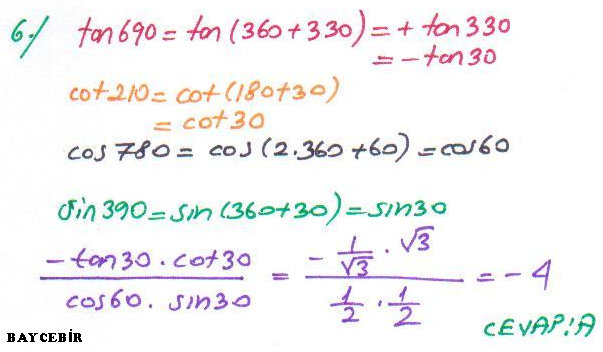 6-) tan690 = tan(360+330) = + tan330
= -tan30
cot210 = cot(180+30)
= cot30
cos780 = cos(2.360+60) = cos60
sin390 = sin(360+30) = sin30
-tan30 . cot30 / cos60 . sin30 = -1/√3 . √3 / 1/2 . 1/2 = -4
CEVAP:A
BAYCEBİR